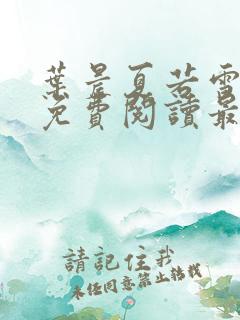 葉晨夏若雪
免費閱讀最
請記住我
未经同意禁止转载